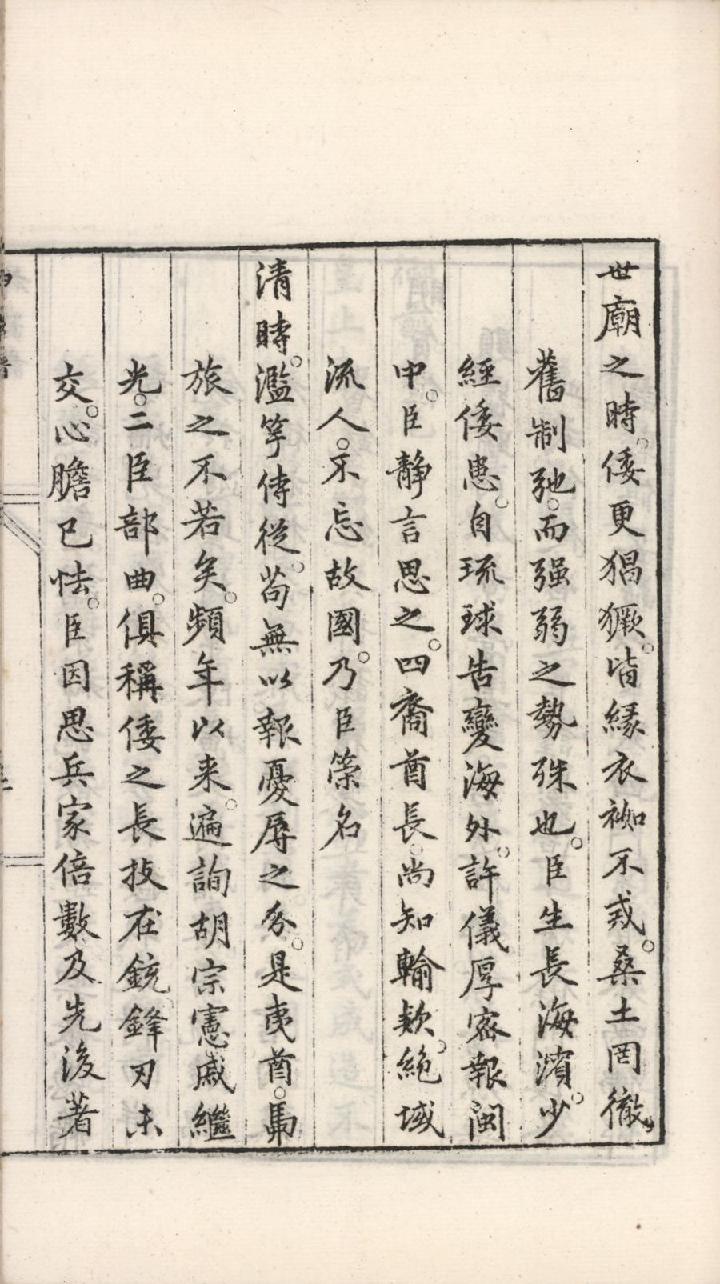 世廟之時。倭更猖獗。皆緣衣袽不戒。桑土罔徹。
舊制弛。而强弱之勢殊也。臣生長海濱。少
經倭患。自琉球告變海外。許儀厚密報閩
中。臣靜言思之。四裔酋長。尚知輸欵。絶域
流人。不忘故國。乃臣榮名
清時。濫竽侍從。苟無以報憂辱之分。是夷酋。
旅之不若矣。頻年以来。遍詢胡宗憲戚繼
光。二臣部曲。俱稱倭之長技在銃。鋒刃未
交。心膽已怯。臣因思兵家倍數及先後著